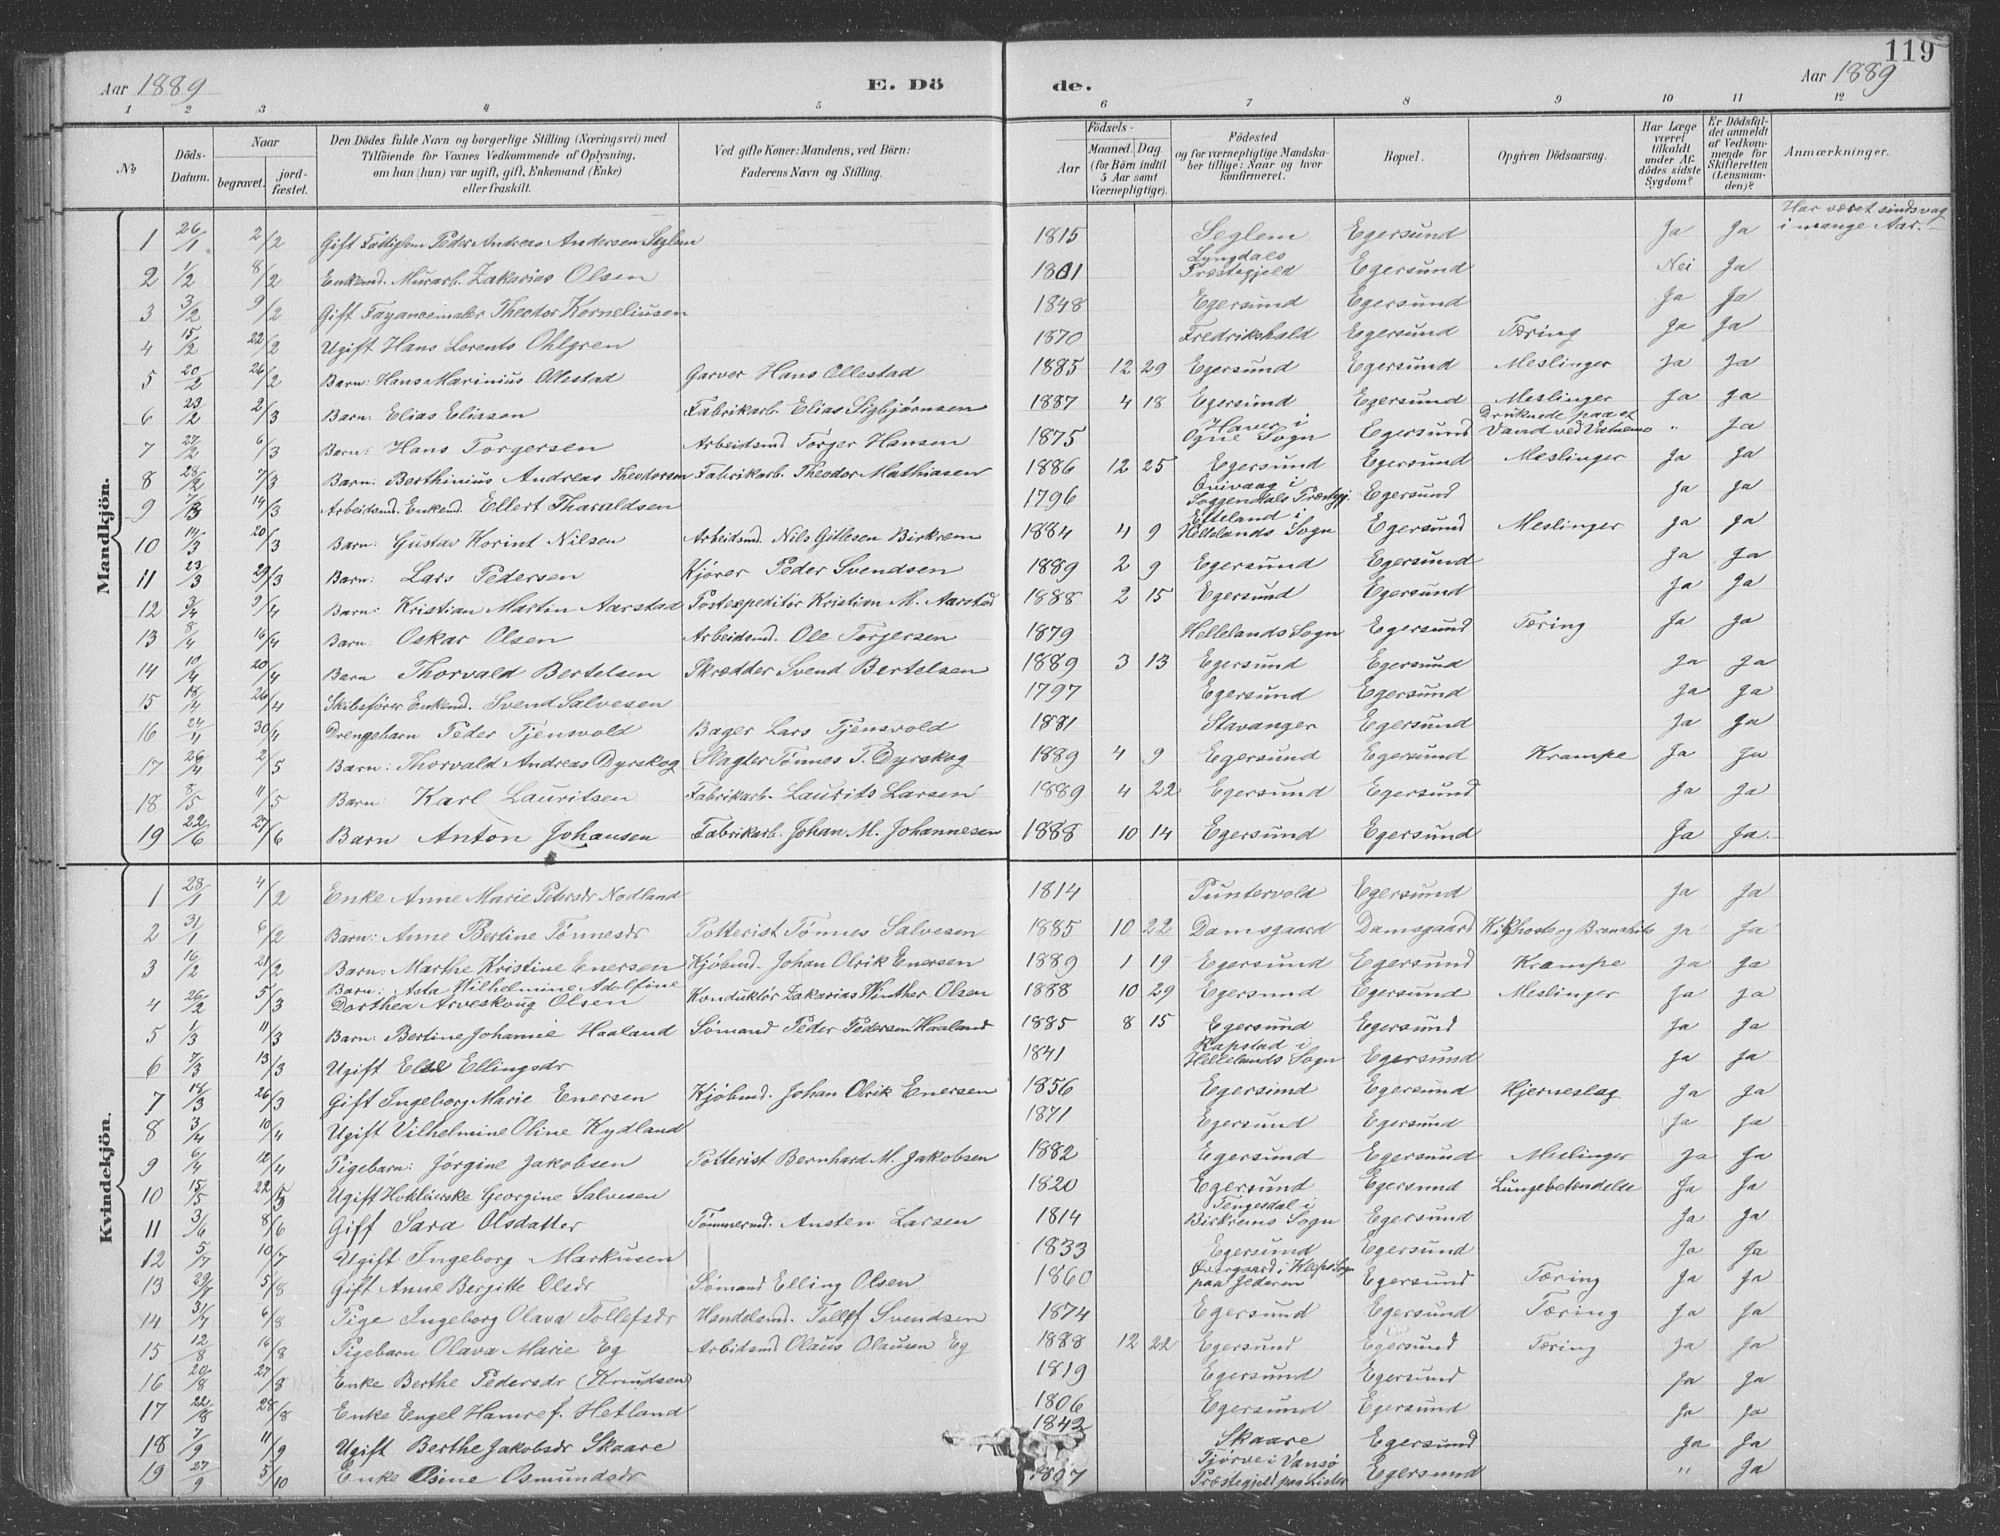 119
Aar 1889 E. Dö de. Aar 1889
1 2 3 4 5 6 7 8 9 10 11 12
No Döds-Datum. Naar begravet. jordfæstet. Den Dödes fulde Navn og borgerlige Stilling (Næringsvei) med Tilföiende for Voxnes Vedkommende af Oplysning, om han (hun) var ugift, gift, Enkemand (Enke) eller fraskilt. Ved gifte Koner: Mandens, ved Börn: Faderens Navn og Stilling. Födsels- Aar Maaned. Dag. (for Börn indtil 5 Aar samt Værnepligtige). Födested og for værnepligtige Mandskaber tillige: Naar og hvor konfirmeret. Bopæl. Opgiven Dödsaarsag. Har Læge været tilkaldt under Afdödes sidste Sygdom? Er Dödsfaldet anmeldt af Vedkommende for Skifteretten (Lensmanden)? Anmærkninger.
Mandkjön.
1 26/1 2/2 Gift Fattiglem Peder Andreas Andersen Seglem 1815 Seglem Egersund Ja Ja Har været sindsvag i mange Aar.
2 1/2 8/2 Enkemd. Murarb. Zakarias Olsen 1801 Lyngdals Præstegjeld Egersund Nei Ja
3 3/2 9/2 Gift Fayancemaler Theodor Korneliusen 1848 Egersund Egersund Ja Ja
4 15/2 22/2 Ugift Hans Lorents Ohlgren 1870 Fredrikshald Egersund Tæring Ja Ja
5 20/2 26/2 Barn: Hans Marinius Ollestad Garver Hans Ollestad 1885 12 29 Egersund Egersund Meslinger Ja Ja
6 23/2 2/3 Barn: Elias Eliasen Fabrikarb. Elias Sigbjørnsen 1887 4 18 Egersund Egersund Meslinger Ja Ja
7 27/2 6/3 Barn: Hans Torgersen Arbeidsmd Torger Hansen 1875 Haver i Ogne Sogn Egersund Druknede paa et Vand ved " Ja
8 28/2 7/3 Barn: Berthinius Andreas Theodorsen Fabrikarb. Theodor Mathiasen 1886 12 25 Egersund Egersund Meslinger Ja Ja
9 7/3 14/3 Arbeidsmd. Enkemd. Ellert Tharaldsen 1796 i Soggendals Præstgj. Egersund Ja Ja
10 14/3 20/3 Barn: Gustav Korint Nilsen Arbeidsmd. Nils Gitlesen Birkrem 1884 4 9 Efteland i Hellelands Sogn Egersund Meslinger Ja Ja
11 23/3 29/3 Barn: Lars Pedersen Kjører Peder Svendsen 1889 2 9 Egersund Egersund Ja Ja
12 3/4 9/4 Barn: Kristian Martin Aarstad Postexpeditör Kristian M. Aarstad 1888 2 15 Egersund Egersund Ja Ja
13 8/4 16/4 Barn: Oskar Olsen Arbeidsmd. Ole Torjersen 1879 Hellelands Sogn Egersund Tæring Ja Ja
14 10/4 20/4 Barn Thorvald Bertelsen Skrædder Svend Bertelsen 1889 3 13 Egersund Egersund Ja Ja
15 18/4 26/4 Skibsfører Enkemd. Svend Salvesen 1797 Egersund Egersund Ja Ja
16 24/4 30/4 Drengebarn Peder Tjensvold Bager Lars Tjensvold 1881 Stavanger Egersund Ja Ja
17 26/4 2/5 Barn: Thorvald Andreas Dyrskog Slagter Tönnes T. Dyrskog 1889 4 9 Egersund Egersund Krampe Ja Ja
18 8/5 11/5 Barn Karl Lauritsen Fabrikarb. Laurits Larsen 1889 4 22 Egersund Egersund Ja Ja
19 22/6 27/6 Barn Anton Johansen Fabrikarb. Johan M. Johannesen 1888 10 14 Egersund Egersund Ja Ja.
Kvindekjön.
1 28/1 4/2 Enke Anne Marie Petersdr Nodland 1814 Puntervold Egersund Ja Ja
2 31/1 6/2 Barn: Anne Bertine Tönnesdr Potterist Tönnes Salvesen 1885 10 22 Damsgaard Damsgaard Kikhoste og Ja Ja
3 16/2 21/2 Barn: Marthe Kristine Enersen Kjöbmd. Johan Olrik Enersen 1889 1 19 Egersund Egersund Krampe Ja Ja
4 26/2 5/3 Barn: Asta Wilhelmine Adolfine Dorthea Arveskoug Olsen Konduktör Zakarias Winther Olsen 1888 10 29 Egersund Egersund Meslinger Ja Ja
5 1/3 11/3 Barn: Bertine Johanne Haaland Sömand Peder Pedersen Haaland 1885 8 15 Egersund Egersund Ja Ja
6 7/3 13/3 Ugift Else Ellingsdr 1841 Rapstad i Hellelands Sogn Egersund Ja Ja
7 18/3 26/3 Gift Ingeborg Marie Enersen Kjöbmd. Johan Olrik Enersen 1856 Egersund Egersund Hjerneslag Ja Ja
8 3/4 10/4 Ugift Vilhelmine Oline Kydland 1871 Egersund Egersund Ja Ja
9 6/4 12/4 Pigebarn: Jörgine Jakobsen Potterist Bernhard M. Jakobsen 1882 Egersund Egersund Meslinger Ja Ja
10 15/5 22/5 Ugift Georgine Salvesen 1820 Egersund Egersund Lungebetendelse Ja Ja
11 3/6 8/6 Gift Sara Olsdatter Tömmermd. Ansten Larsen 1814 Tengesdal i Birkrems Sogn Egersund Ja Ja
12 5/7 10/7 Ugift Ingeborg Markusen 1833 Egersund Egersund Ja Ja
13 29/7 5/8 Gift Anne Bergitte Olsdr Sömand Elling Olsen 1860 i Kleps Sogn paa Jederen Egersund Tæring Ja Ja
14 31/7 6/8 Pige Ingeborg Olava Tollefsdr Handelsmd. Tollef Svendsen 1874 Egersund Egersund Tæring Ja Ja
15 12/8 16/8 Pigebarn Olava Marie Eg Arbidsmd Olaus Olausen Eg 1888 12 22 Egersund Egersund Tæring Ja Ja
16 20/8 27/8 Enke Berthe Pedersdr (Knudsen) 1819 Egersund Egersund Ja Ja
17 22/8 28/8 Enke Engel Hamre f. Hetland 1806 Egersund Egersund Ja Ja
18 7/9 11/9 Ugift Berthe Jakobsdr Skaare 1842 Skaare Egersund Ja Ja
19 27/9 5/10 Enke Osmundsdr 1807 Tjörve i Vansö Præstegjeld paa Lister Egersund " Ja